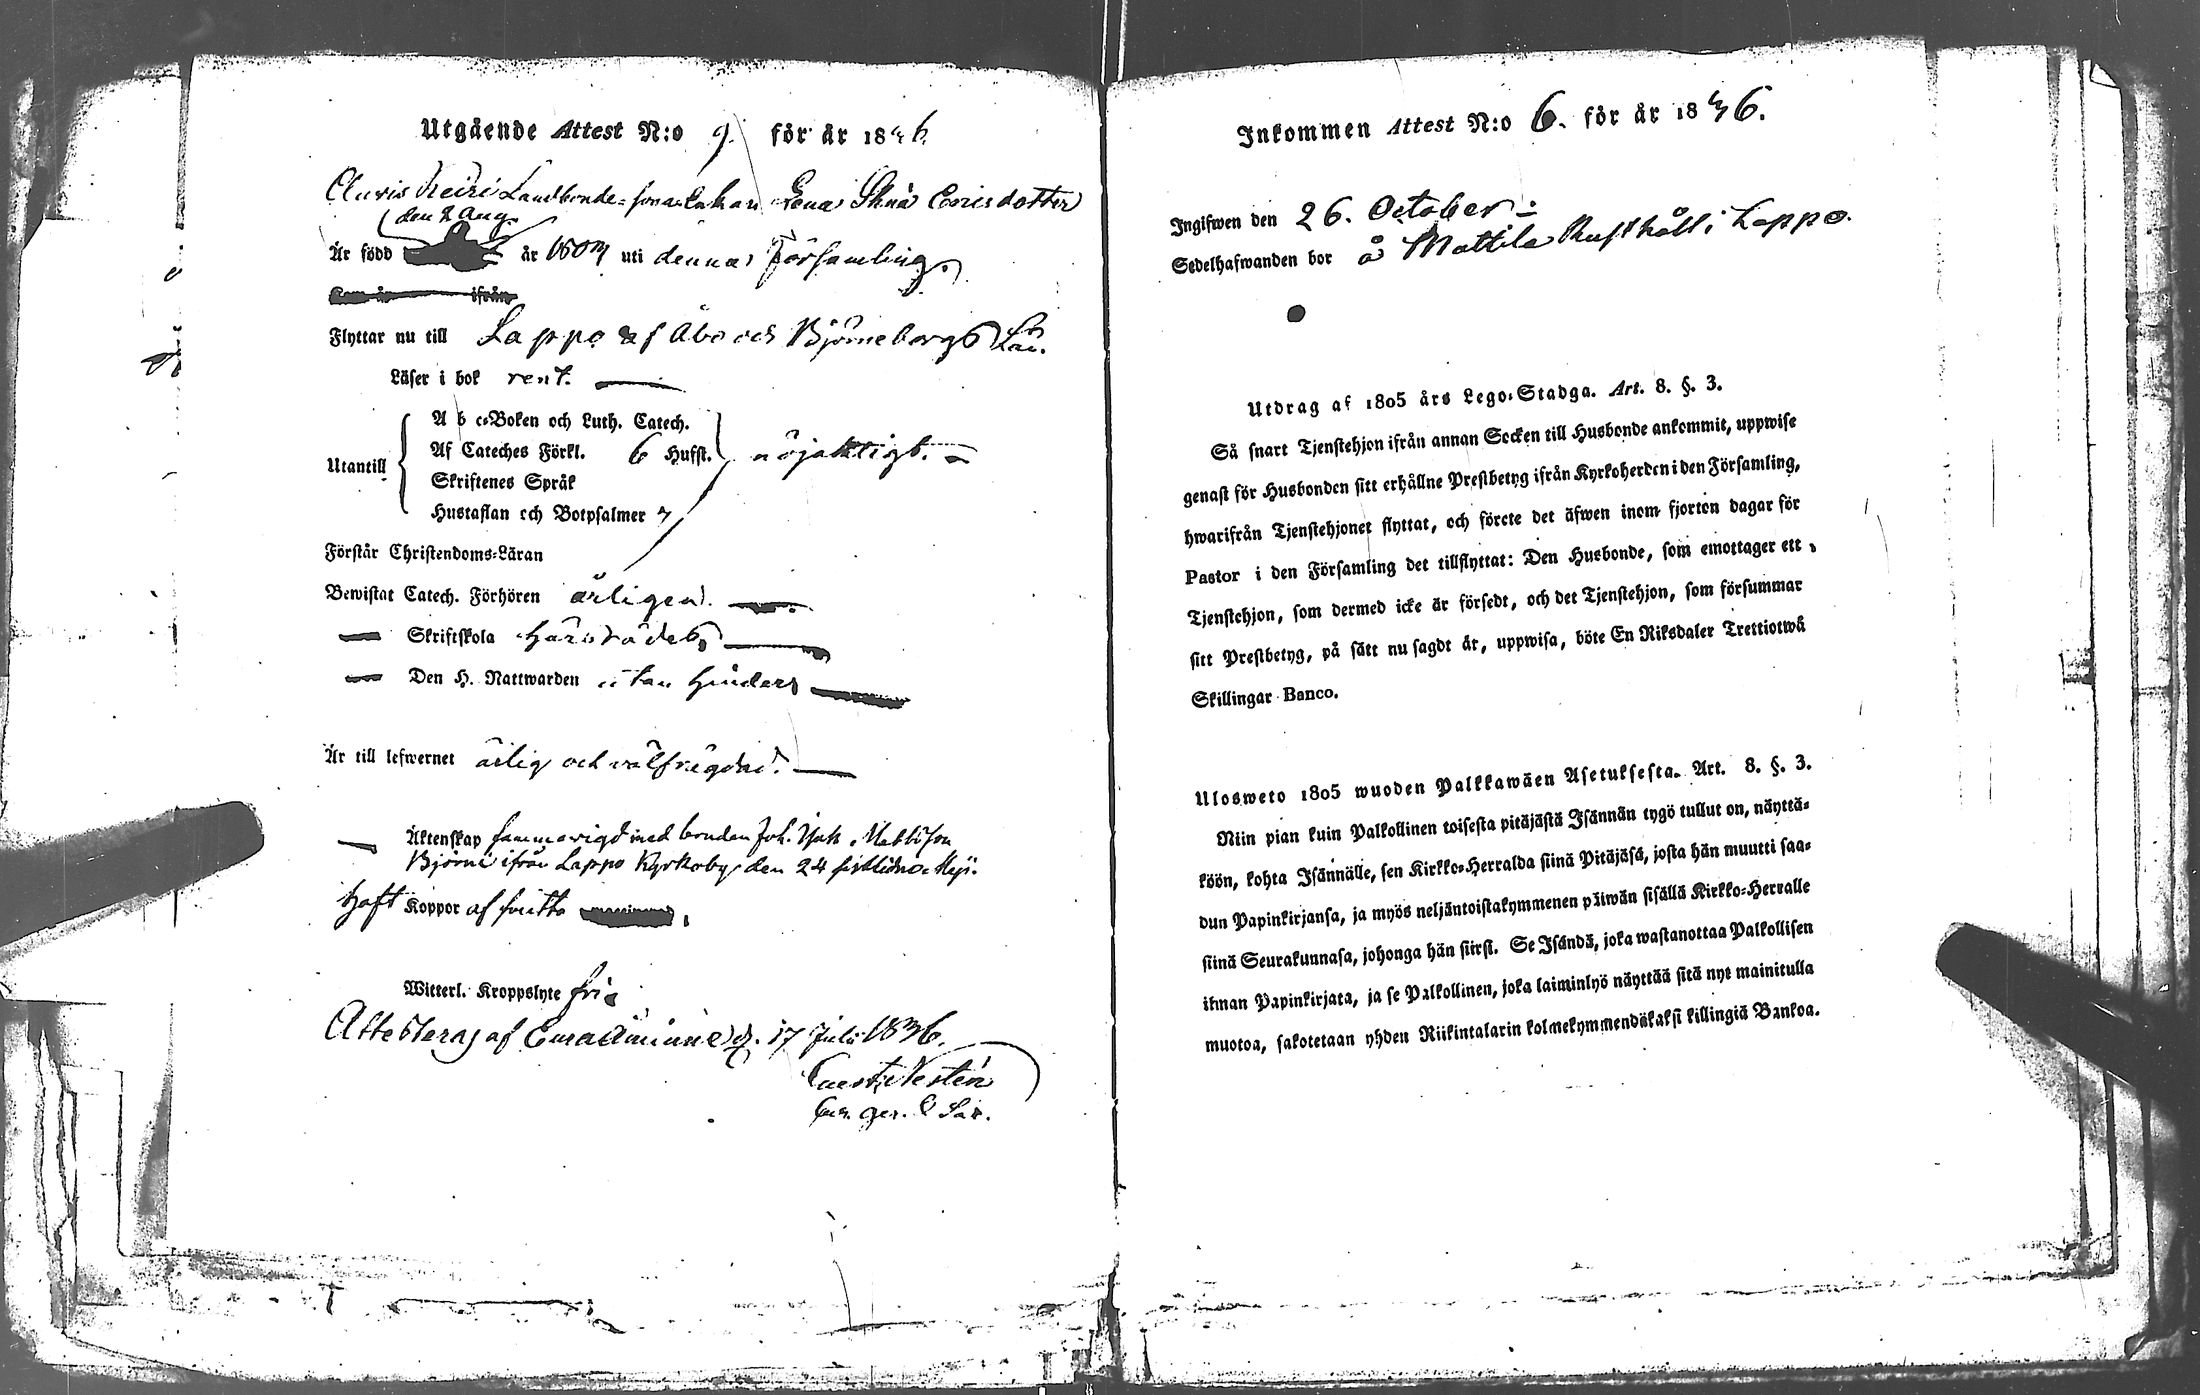 Utgående Attest N:o 9. för år 1836.
Landbonde-sona-Enkan Lena Stina Ericsdotter
den 8 Aug.
Är född år 1803 uti denna Församling.
Kom år ifrån
Flyttar nu till Lappo af Åbo och Björneborgs Län.
Läser i bok rent.
Utantill
A b c-Boken och Luth. Catech.
Af Cateches Förkl. 6 Hufst.
Skriftenes Språk
Hustaflan och Botpsalmer
nöjaktigt.
Förstår Christendoms-Läran
Bewistat Catech. Förhören årligen.
Skriftskola härstädes
Den H. Nattwarden utan hinder
Är till lefwernet ärlig och välfrägdad.
Äktenskap sammanvigd med bonden Joh. Mattsson
Björni ifrån Lappo Kyrkoby den 24 sistlidne Maji.
Haft Koppor af
Witterl. Kroppslyte fri
Attesteras af Euraåminne d. 17 Juli 1836.
Inkommen Attest N:o 6. för år 1836.
Ingifwen den 26. October
Sedelhafwanden bor å Mattila Rusthåll i Lappo.
Utdrag af 1805 års Lego-Stadga. Art. 8. §. 3.
Så snart Tjenstehjon ifrån annan Socken till Husbonde ankommit, uppwise
genast för Husbonden sitt erhållne Prestbetyg ifrån Kyrkoherden i den Församling,
hwarifrån Tjenstehjonet flyttat, och förete det äfwen inom fjorton dagar för
Pastor i den Församling det tillflyttat: Den Husbonde, som emottager ett
Tjenstehjon, som dermed icke är försedt, och det Tjenstehjon, som försummar
sitt Prestbetyg, på sätt nu sagdt är, uppwisa, böte En Riksdaler Trettiotwå
Skillingar Banco.
Ulosweto 1805 wuoden Palkkawäen Asetuksesta. Art. 8. §. 3.
Niin pian kuin Palkollinen toisesta pitäjästä Isännän tygö tullut on, näyttä-
köön, kohta Isännälle, sen Kirkko-Herralda siinä Pitäjäsä, josta hän muutti saa-
dun Papinkirjansa, ja myös neljäntoistakymmenen päiwän sisällä Kirkko-Herralle
siinä Seurakunnasa, johonga hän siirst. Se Isändä, joka wastanottaa Palkollisen
ihnan Papinkirjata, ja se Palkollinen, joka laiminlyö näyttää sitä nyt mainitulla
muotoa, sakotetaan yhden Riikintalarin kolmekymmendäkaksi killingiä Bankoa.